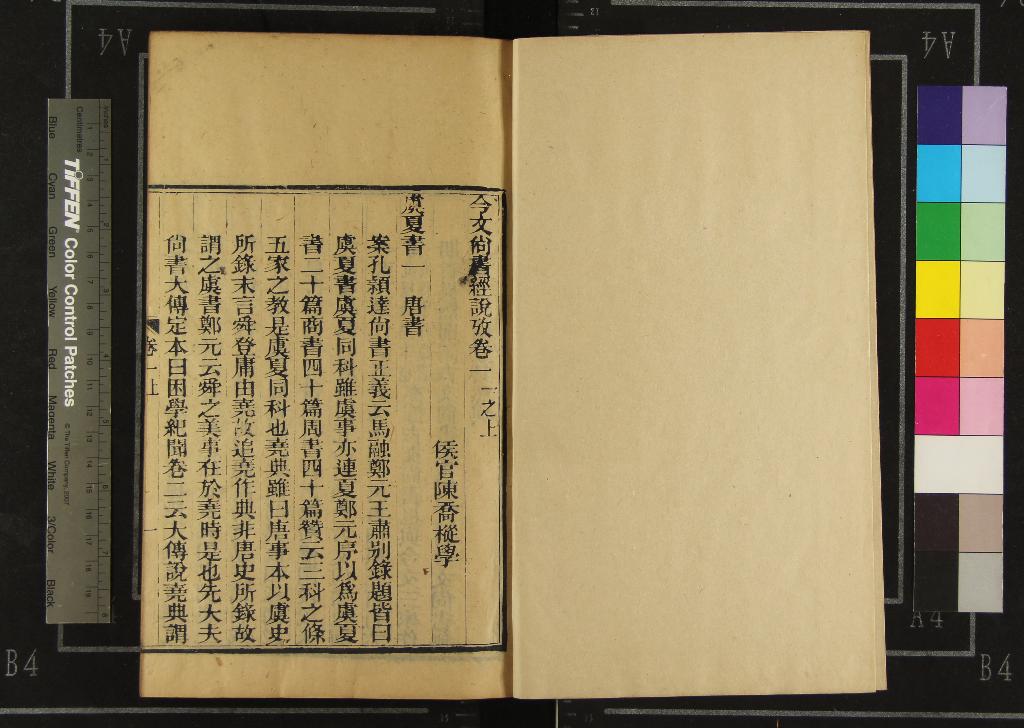 今文尙書經說攷卷一 一之上
侯官陳喬樅學
虞夏書一 唐書
案孔穎達尙書正義云馬融鄭元王肅別錄題皆曰
虞夏書虞夏同科雖虞事亦連夏鄭元序以爲虞夏
書二十篇商書四十篇周書四十篇贊云三科之條
五家之敎是虞夏同科也堯典雖曰唐事本以虞史
所錄末言舜登庸由堯故追堯作典非唐史所錄故
謂之虞書鄭元云舜之美事在於堯時是也先大夫
尙書大傳定本曰困學紀聞卷二云大傳說堯典謂
卷一上
一
TIFFEN Color Control Patches
© The Tiffen Company, 2007
Centimetres
Inches
Blue
Cyan
Green
Yellow
Red
Magenta
White
3/Color
Black
A4
A4
A4
B4
B4